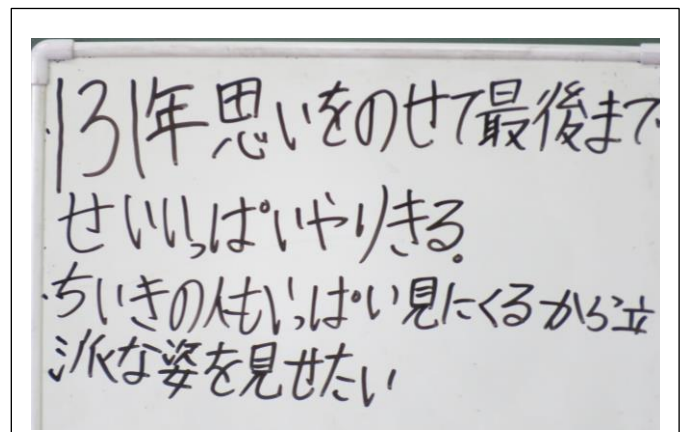 ・131年思いをのせて最後まで
せいいっぱいやりきる。
・ちいきの人もいっぱい見にくるから立
派な姿を見せたい